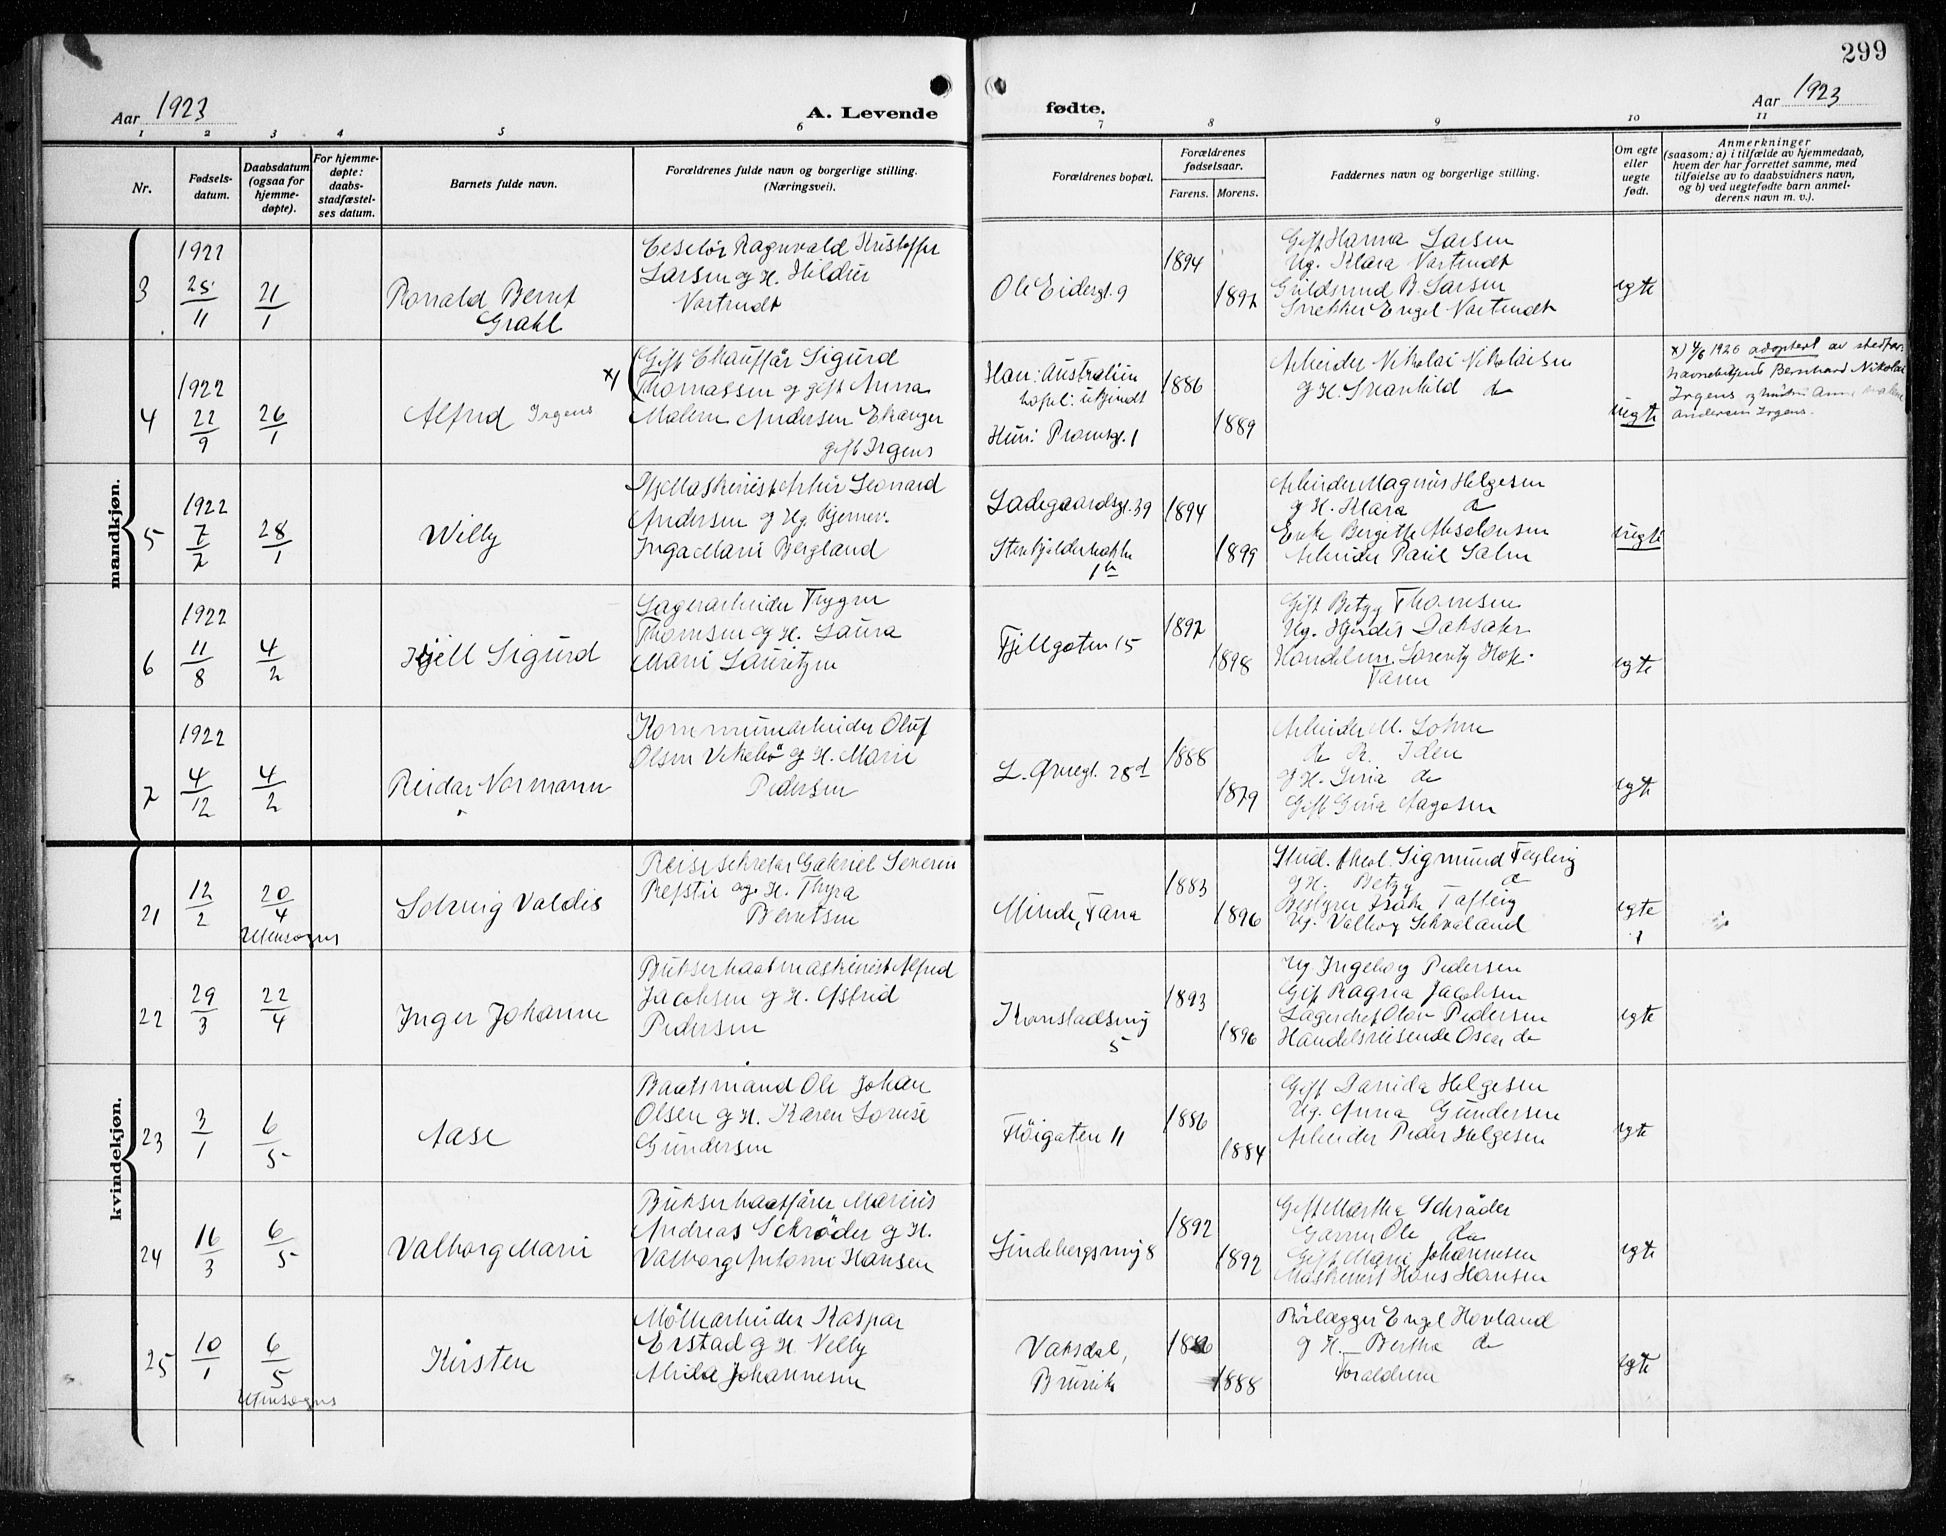 299
Aar 1923
A. Levende
fødte.
Aar 1923
1 2 3 4 5 6 7 8 9 10 11
Nr.
Fødsels-
datum.
Daabsdatum
(ogsaa for
hjemme-
døpte).
For hjemme-
døpte:
daabs-
stadfæstel-
ses datum.
Barnets fulde navn.
Forældrenes fulde navn og borgerlige stilling.
(Næringsvei).
Forældrenes bopæl.
Forældrenes
fødselsaar.
Farens. Morens.
Faddernes navn og borgerlige stilling.
Om egte
eller
uegte
født.
Anmerkninger
(saasom: a) i tilfælde av hjemmedaab,
hvem der har forrettet samme, med
tilføielse av to daabsvidners navn,
og b) ved uegtefødte barn anmel-
derens navn m. v.).
mandkjøn.
3
1922
25/11
21/1
Ronald Bernt
Grahl
Ragnvald Kristoffer
Larsen og H. Hildur
Vortrudt
Ole Eidesgt. 9
1894
1892
Gift Hanna Larsen
Ug. Klara Vortrudt
Guldsmed B. Larsen
Snekker Engel Vortrudt
egte
4
1922
22/9
26/1
Alfred Irgens
x) Gift Chauffør Sigurd
Thomassen og gift Anna
Malene Andersen
gift Irgens
Han: Australien
bopel: ukjendt
Hun: Pramsgt. 1
1886
1889
Arbeider Nikolai Nikolaisen
og H. Svanhild do
uegte
x) 4/6 1926 adoptert av stedfar
Bernhard Nikolai
Irgens og hustru
Andersen Irgens.
5
1922
7/2
28/1
Willy
Leonard
Andersen og Ug. Hjemmev.
Inga Marie Bergland
Ladegaardsgt. 39
Stenkjelderbakke
1b
1894
1899
Arbeider Magnus Helgesen
og H. Klara do
Enke Bergithe Absolonsen
Arbeider Paul Salm
uegte
6
1922
11/8
4/2
Kjell Sigurd
Lagerarbeider Trygve
Thomsen og H. Laura
Marie Lauritzen
Fjellgaten 15
1892
1898
Gift Betzy Thomsen
Ug. Hjørdis
Handelsm. Lorentz
egte
7
1922
4/12
4/2
Reidar Normann
Kommunearbeider Oluf
Olsen Vikebø og H. Marie
Pedersen
L. Øvregt. 28d
1888
1879
Arbeider M. Sohn
do Iden
og H. Gina do
Gift Gina Aagesen
egte
kvindekjøn.
21
12/2
20/4
Utensogns
Solveig Valdis
Reisesekretær Gabriel Severin
Refstie og H. Thyra
Berntsen
Minde, Fana
1883
1896
Stud. theol. Sigmund
og H. Betzy do
Bestyrer
Ug. Valborg
egte
22
29/3
22/4
Inger Johanne
Bukserbaatmaskinist Alfred
Jacobsen og H. Astrid
Pedersen
Kronstadsvej
5
1893
1896
Ug. Ingeborg Pedersen
Gift Ragna Jacobsen
Lagerchef Olav Pedersen
Handelsreisende Oscar do
egte
23
3/1
6/5
Aase
Baatsmand Ole Johan
Olsen og H. Karen Lovise
Gundersen
Fløigaten 11
1886
1884
Gift Davida Helgesen
Ug. Anna Gundersen
Arbeider Peder Helgesen
egte
24
16/3
6/5
Valborg Marie
Bukserbaatfører Marius
Andreas Schrøder og H.
Valborg Antonie Hansen
Lindebergsvej 8
1892
1892
Gift Martha Schrøder
Ole do
Gift Marie Johannesen
Maskinist Hans Hansen
egte
25
10/1
6/5
Utensogns
Kirsten
Møllearbeider Kaspar
Erstad og H. Nelly
Alida Johannesen
Vaksdal,
Bruvik
1888
Rørlægger Engel Hovland
og H. Bertha do
Forældrene
egte